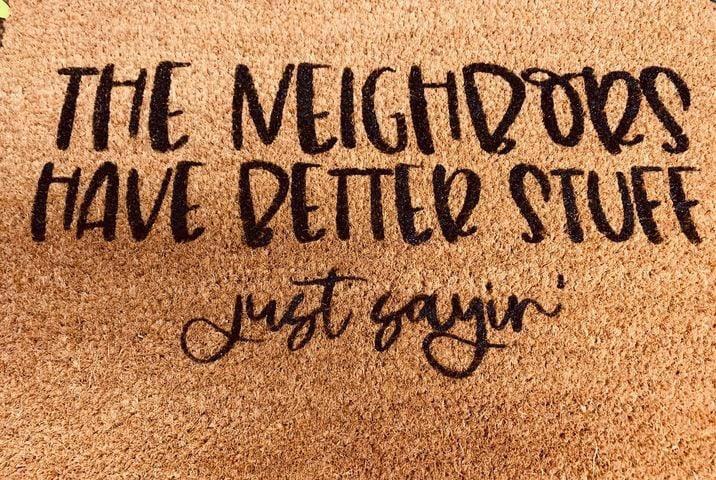 THE NEIGHBORS
HAVE BETTER STUFF
just sayin'